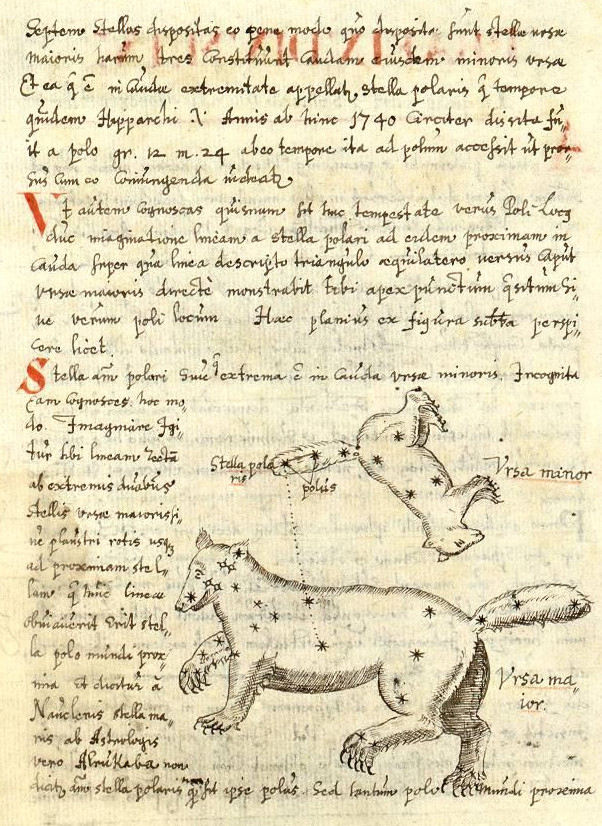 Septem Stellas dispositas eo pene modo quo dispositæ sunt stellæ ursæ
maioris harum tres Constituunt Caudam eiusdem minoris ursæ
Et ea q̃ ẽ in Caudæ extremitate appellatꝫ stella polaris q̃ tempore
quidem Hypparchi Annis ab hinc 1740 Circiter dissita fu„
it a polo gr. 12 m. 24 ab eo tempore ita ad polum accessit ut pror„
sus Cum eo Coniungenda videatꝫ
Vt autem Cognoscas quisnam sit hac tempestate verus Poli Locꝫ
duc imaginatione lineam a stella polari ad eidem proximam in
Cauda super qua linea descripto triangulo æquilatero versus Caput
vrsæ maioris directè monstrabit tibi apex punctum q̃situm si„
ue verum poli locum Hæc planius ex figura subĩta perspi„
cere licet.
Stella aũt polari siue extrema ẽ in Cauda vrsæ minoris Incognita
eam Cognosces hoc mo„
do. Imaginare Igi„
tur tibi lineam rectã
ab extremis duabus
stellis vrsæ maioris si„
ue plaustri rotis usqꝫ
ad proximam stel„
lam q̃ huic lineæ
obviaverit erit stel„
la polo mundi prox„
ima Et dicitur à
Naucleris stella ma„
ris ab Astrologis
vero Alrukaba non
dicitꝫ aũt stella polaris qꝫ sit ipse polus. Sed tantum polo mundi proxima
Stella pola
ris
polus
Vrsa minor
Vrsa ma„
ior.